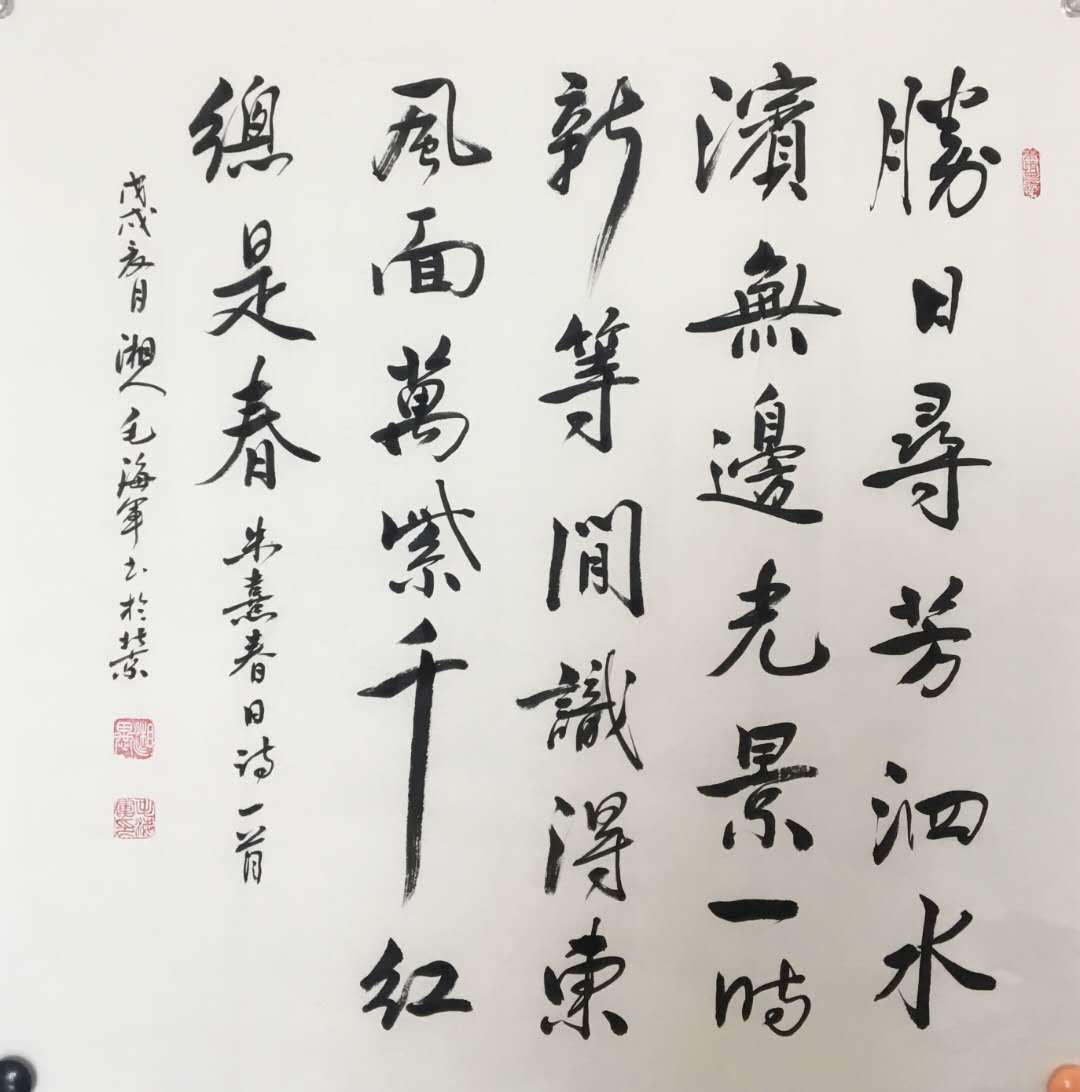 勝日尋芳泗水
濱無邊光景一時
新等閒識得東
風面萬紫千紅
總是春 朱熹春日詩一首
戊戌亥月湘人毛海軍书於北京